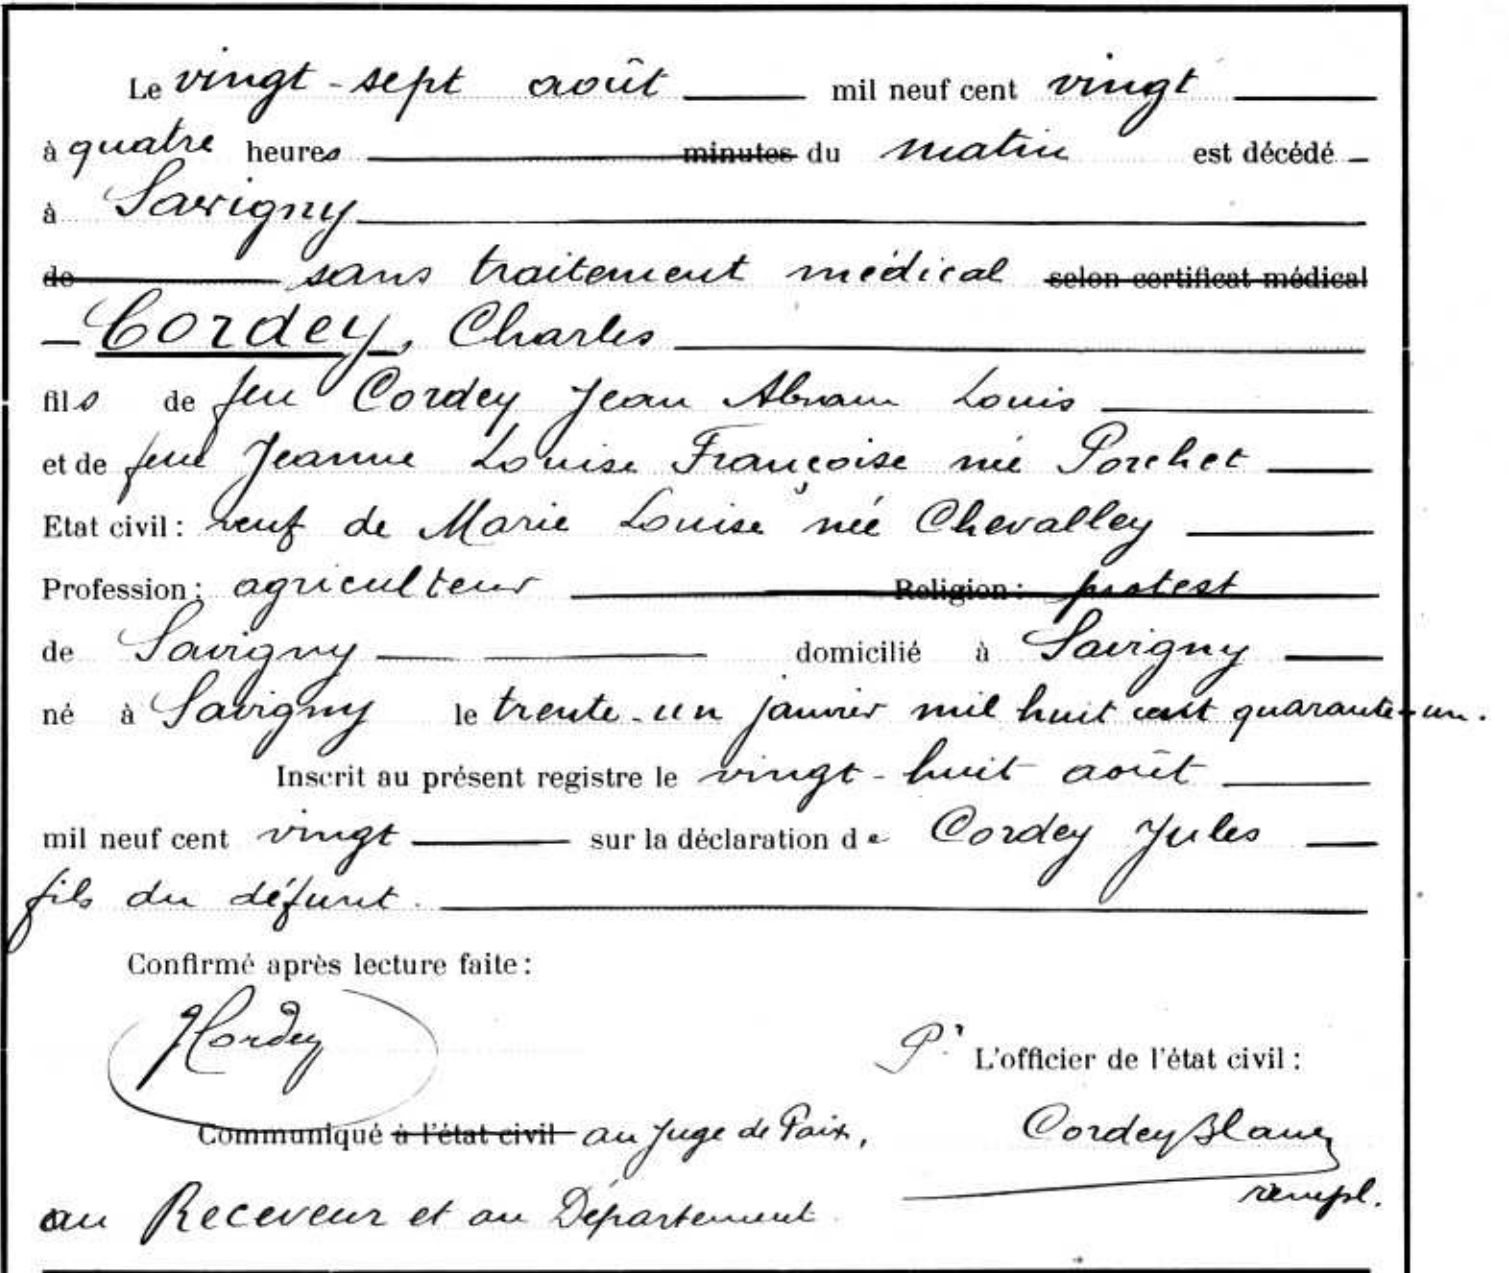 Le vingt-sept août mil neuf cent vingt
à quatre heures minutes du matin est décédé
à Savigny
de sans traitement médical selon certificat médical
Cordey, Charles
fils de feu Cordey Jean Abram Louis
et de feue Jeanne Louise Françoise née Porchet
Etat civil : veuf de Marie Louise née Chevalley
Profession : agriculteur Religion : protest
de Savigny domicilié à Savigny
né à Savigny le trente-un janvier mil huit cent quarante-un.
Inscrit au présent registre le vingt-huit août
mil neuf cent vingt sur la déclaration de Cordey Jules
fils du défunt.
Confirmé après lecture faite :
JCordey
Pr L'officier de l'état civil :
Communiqué à l'état civil au Juge de Paix, Cordey
au Receveur et au Département. rempl.